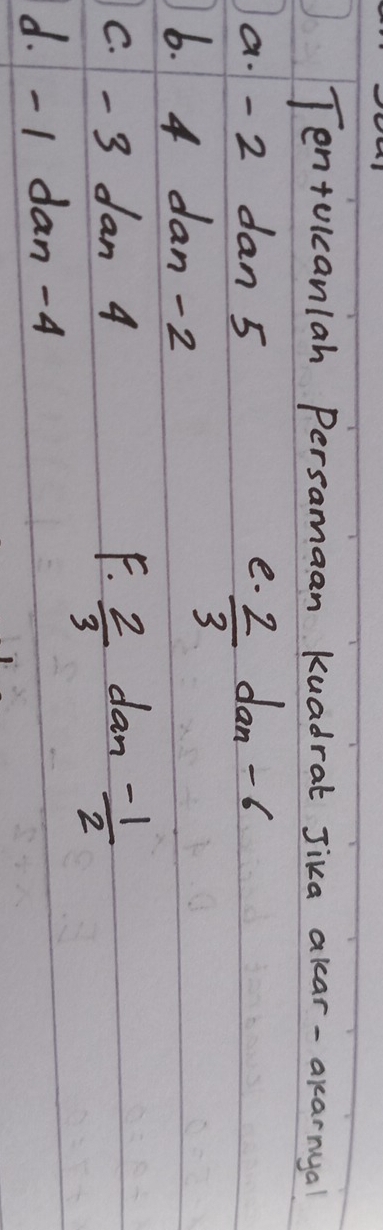 Tentukanlah Persamaan kuadrat Jika akar-akarnya
a. -2 dan 5
e. 2/3 dan -6
b. 4 dan -2
c. -3 dan 4
f. 2/3 dan -1/2
d. -1 dan -4